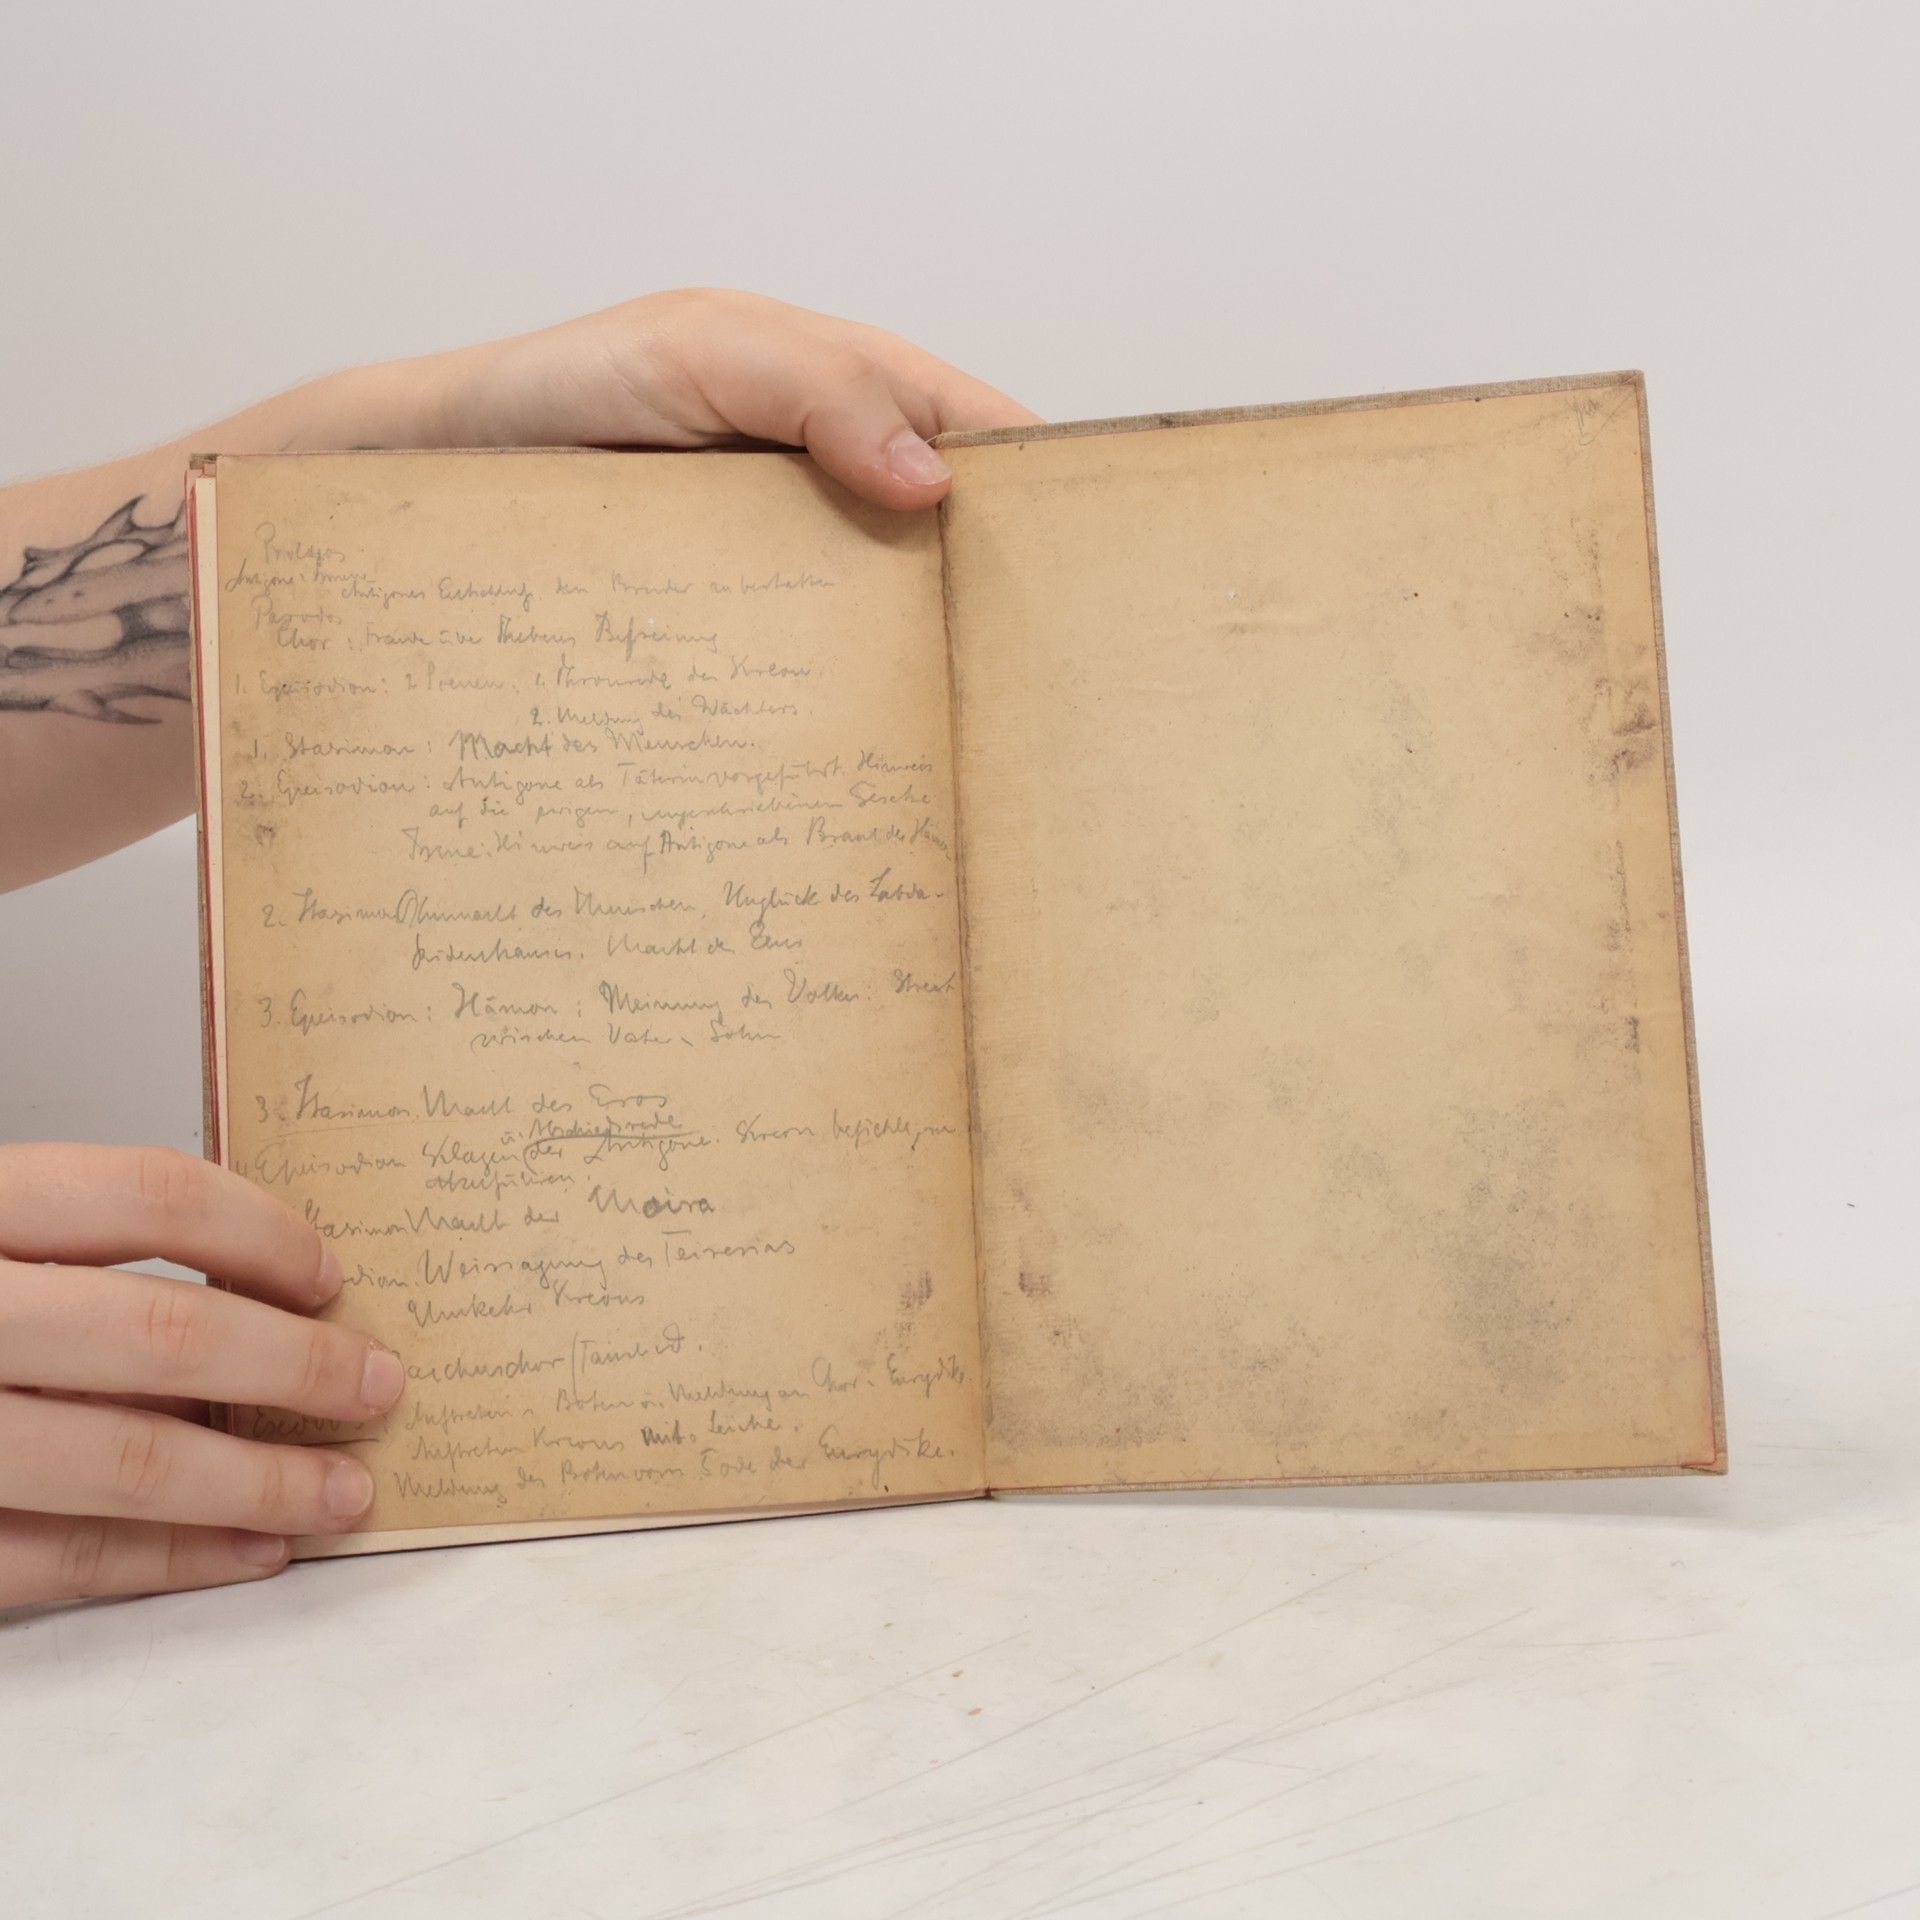 Prologos
Antigone: Ismene
Antigones Entschluß, den Bruder zu bestatten
Parodos
Chor: Freude über Thebens Befreiung
1. Epeisodion: 2 Scenen. 1. Thronrede des Kreon.
2. Meldung des Wächters.
1. Stasimon: Macht des Menschen.
2. Epeisodion: Antigone als Täterin vorgeführt. Hinweis
auf die ewigen, ungeschriebenen Gesetze
Ismene: Hinweis auf Antigone als Braut des Hämon
2. Stasimon Ohnmacht des Menschen, Unglück des Labda-
kidenhauses. Macht des Zeus
3. Epeisodion: Hämon: Meinung des Volkes: Streit
zwischen Vater u. Sohn
3. Stasimon. Macht des Eros
u. Abschiedsrede
4 Epeisodion Klagen der Antigone. Kreon befiehlt, sie
abzuführen.
Stasimon Macht der Moira
odion. Weissagung des Teiresias
Umkehr Kreons
acchuschor (Tanzlied.
Exodos: Auftreten Boten u. Meldung an Chor u. Eurydike.
Auftreten Kreons mit Leiche.
Meldung des Boten vom Tode der Eurydike.